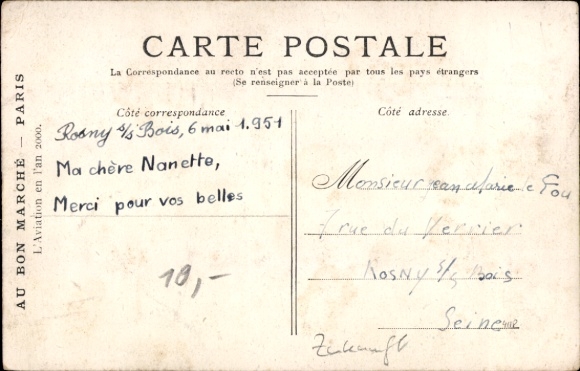 CARTE POSTALE
La Correspondance au recto n'est pas acceptée par tous les pays étrangers
(Se renseigner à la Poste)
AU BON MARCHÉ — PARIS
L'Aviation en l'an 2000.
Côté correspondance
Rosny s/s Bois, 6 mai 1.951
Ma chère Nanette,
Merci pour vos belles
10,-
Côté adresse.
Monsieur jean Marie le Gou
7 rue du Verrier
Rosny s/s Bois
Seine
Zukunft